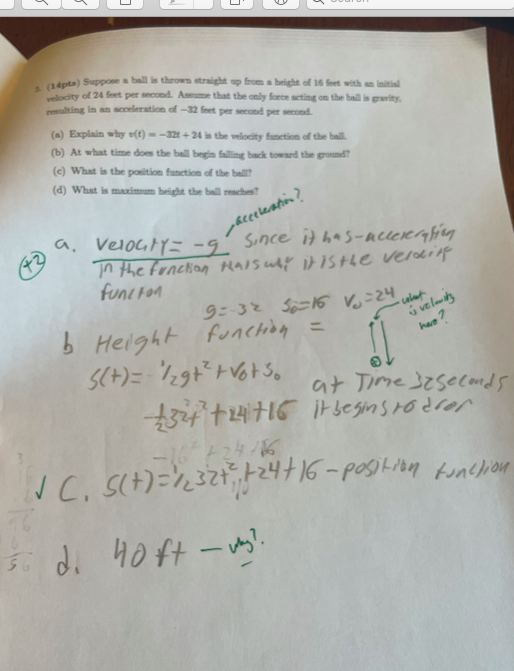 5. (14pts) Suppose a ball is thrown straight up from a height of 16 feet with an initial
velocity of 24 feet per second. Assume that the only force acting on the ball is gravity,
resulting in an acceleration of −32 feet per second per second.
(a) Explain why v(t) = −32t + 24 is the velocity function of the ball.
(b) At what time does the ball begin falling back toward the ground?
(c) What is the position function of the ball?
(d) What is maximum height the ball reaches?
acceleration?
a. Velocity = -g Since it has -acceleration
+2
in the function thats why it is the velocity
function
g=-32 S₀=16 V₀=24
what is velocity here?
b Height function =
S(t)= -1/2gt² + V₀t S₀ at Time 32 seconds
-1/2 32t² + 24t + 16 it begins to drop
-16² + 24 16
✓ C. S(t)=1/2 32t² + 24t + 16 - position function
d. 40 ft - why?